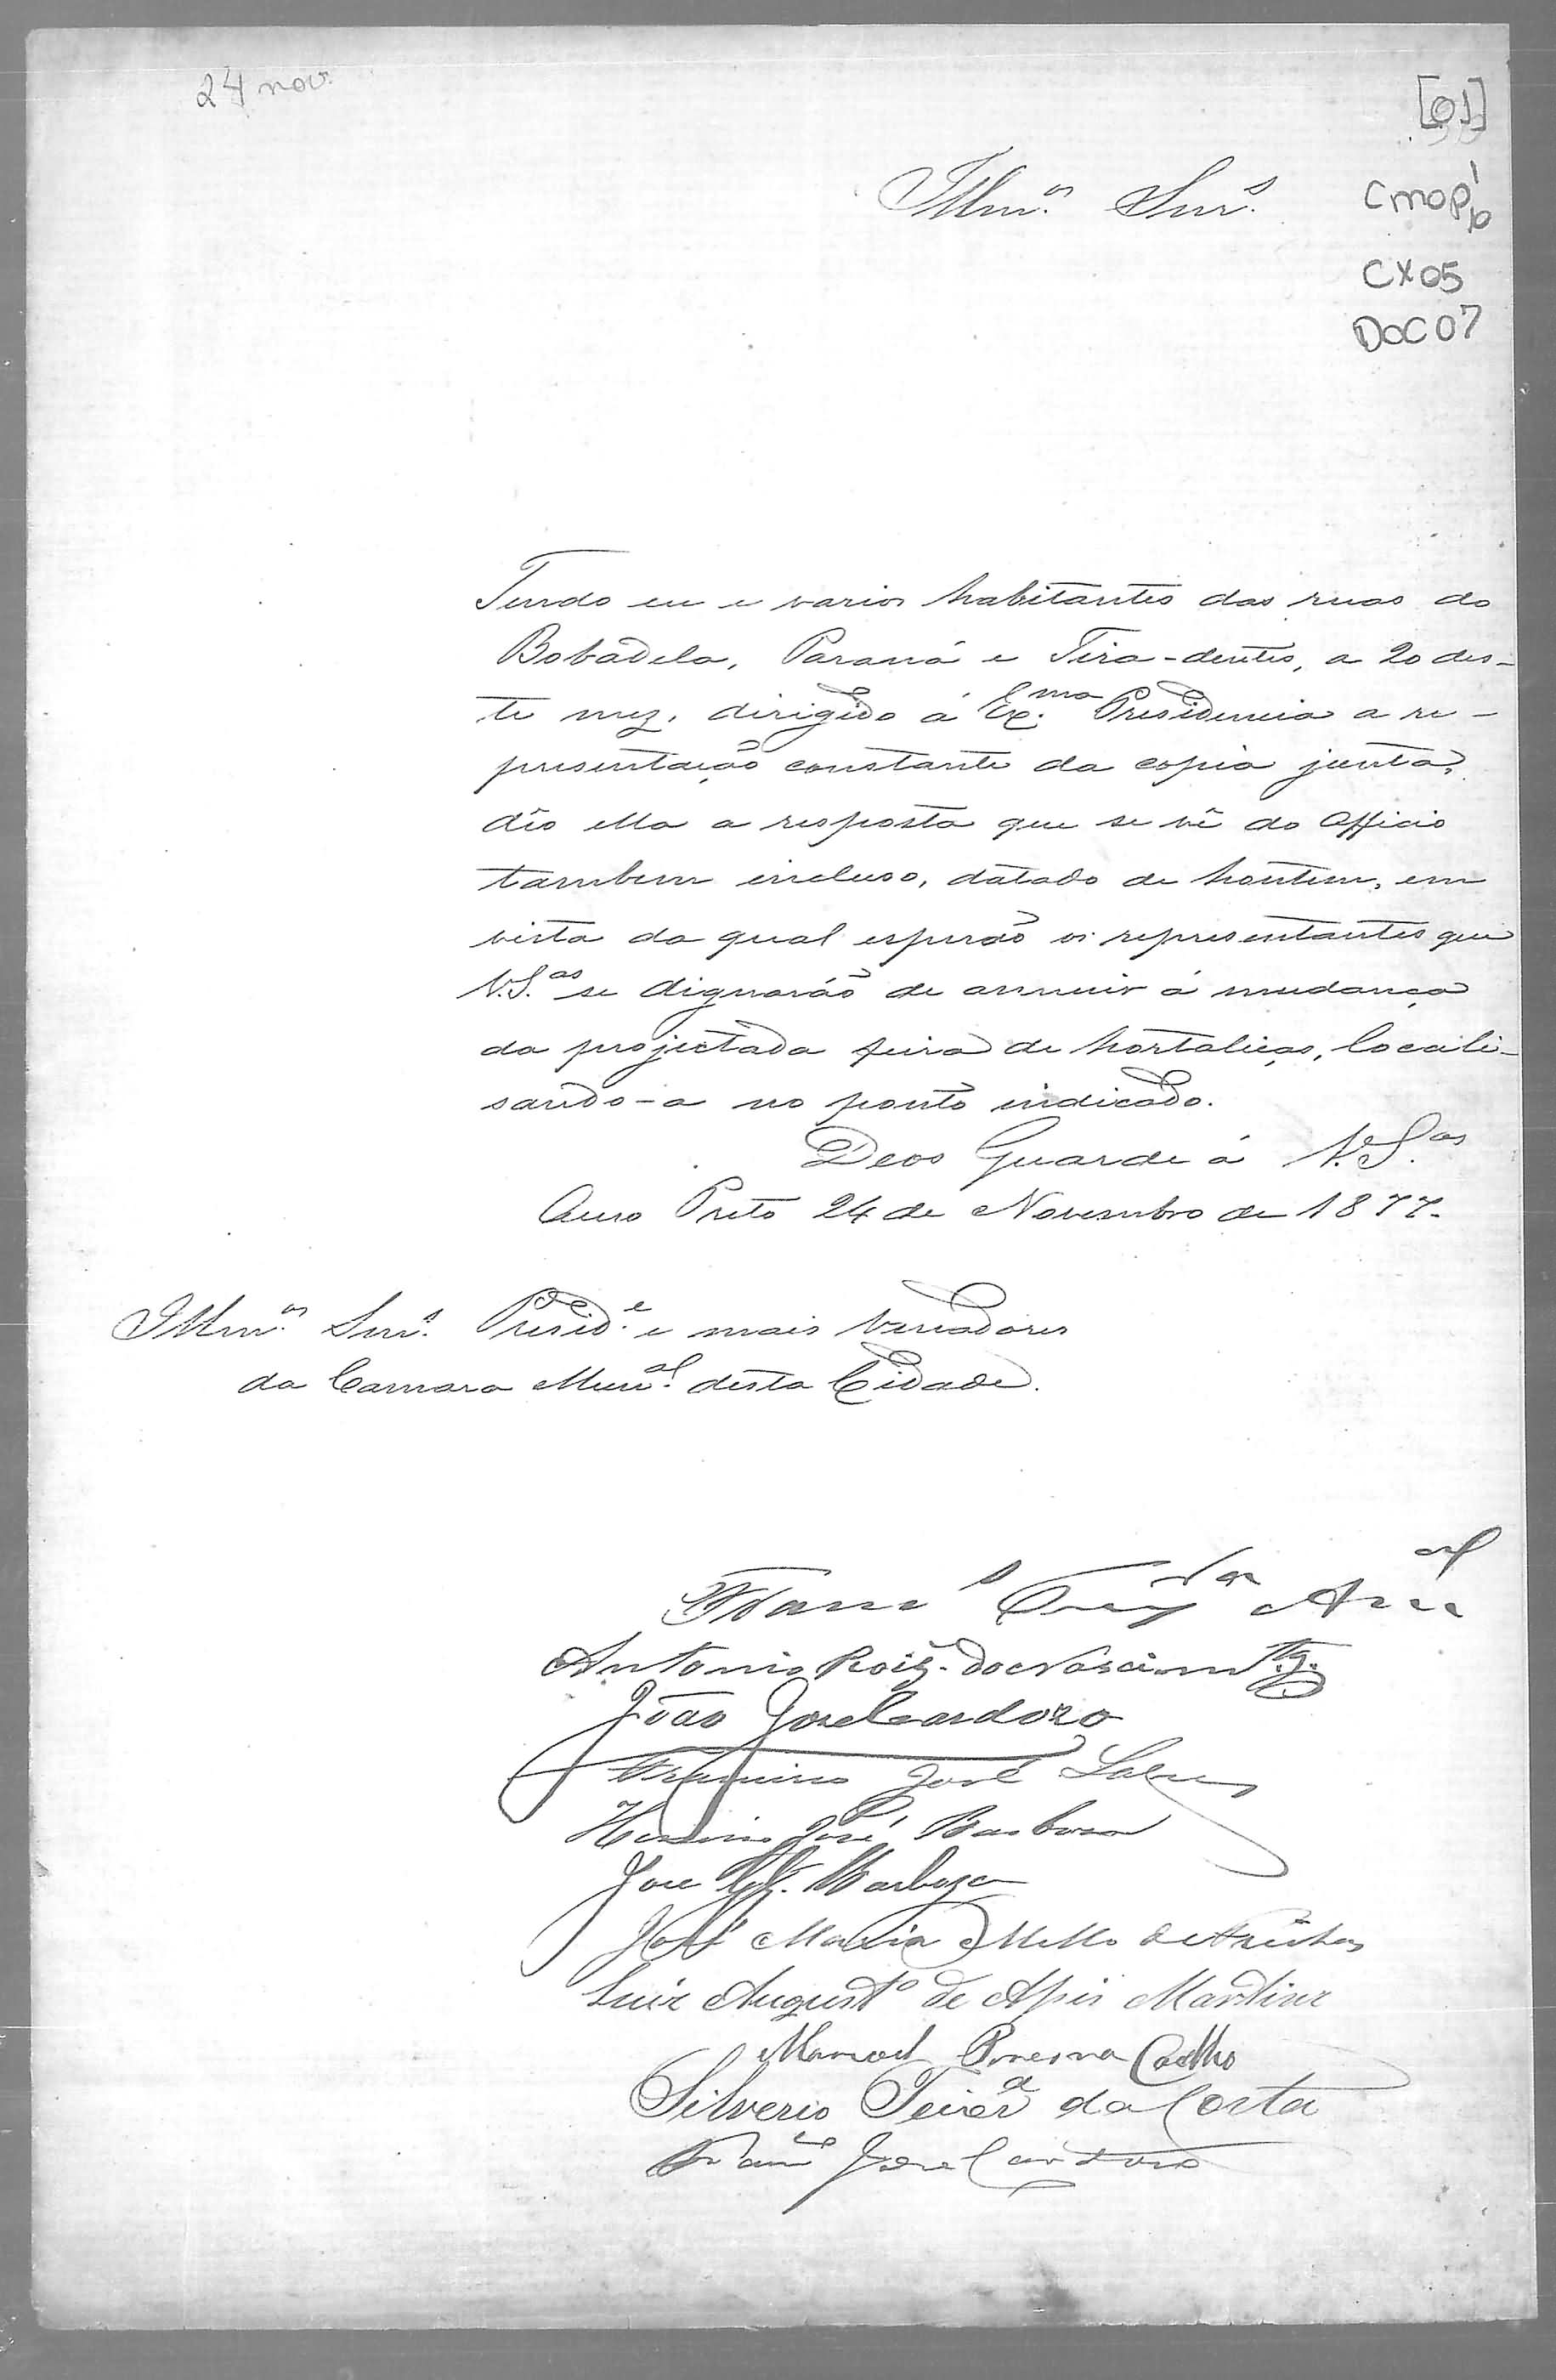 24 nov.
[01]
Illm.os Snr.s
CMOP
CX05
DOC07
Tendo eu e varios habitantes das ruas do
Bobadela, Paraná e Tira-dentes, a 20 des-
te mez, dirigido á Ex.ma Presidencia a re-
presentação constante da copia junta,
dêo ella a resposta que se vê do officio
tambem incluso, datado de hontem, em
vista da qual esperão os representantes que
V.S.as se dignarão de annuir á mudança
da projectada feira de hortaliças, locali-
sando-a no ponto indicado.
Deos Guarde á V.S.as
Ouro Preto 24 de Novembro de 1877.
Illm.os Snr.s Presid.e e mais Vereadores
da Camara Mun.al desta Cidade.
Antonio Roiz. do Nascim.to
João Jose Cardozo
José Salles
José Barboza
Jose Barboza
José Maria Mello de
Luiz August.o de Assis Martins
Manoel Coelho
Silverio Teixr.a da Costa
Fran.co Jose Cardozo